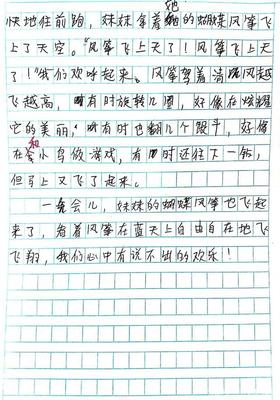 她
快地往前跑，妹妹拿着的蝴蝶风筝飞
上了天空。“风筝飞上天了！风筝飞上天
了！”我们欢呼起来。风筝驾着清风越
飞越高，有时旋转几周，好像在炫耀
它的美丽，有时也翻几个跟斗，好像
在和小鸟做游戏，有时还往下一钻，
但马上又飞了起来。
一会儿，妹妹的蝴蝶风筝也飞起
来了，看着风筝在蓝天上自由自在地飞
飞翔，我们心中有说不出的欢乐！